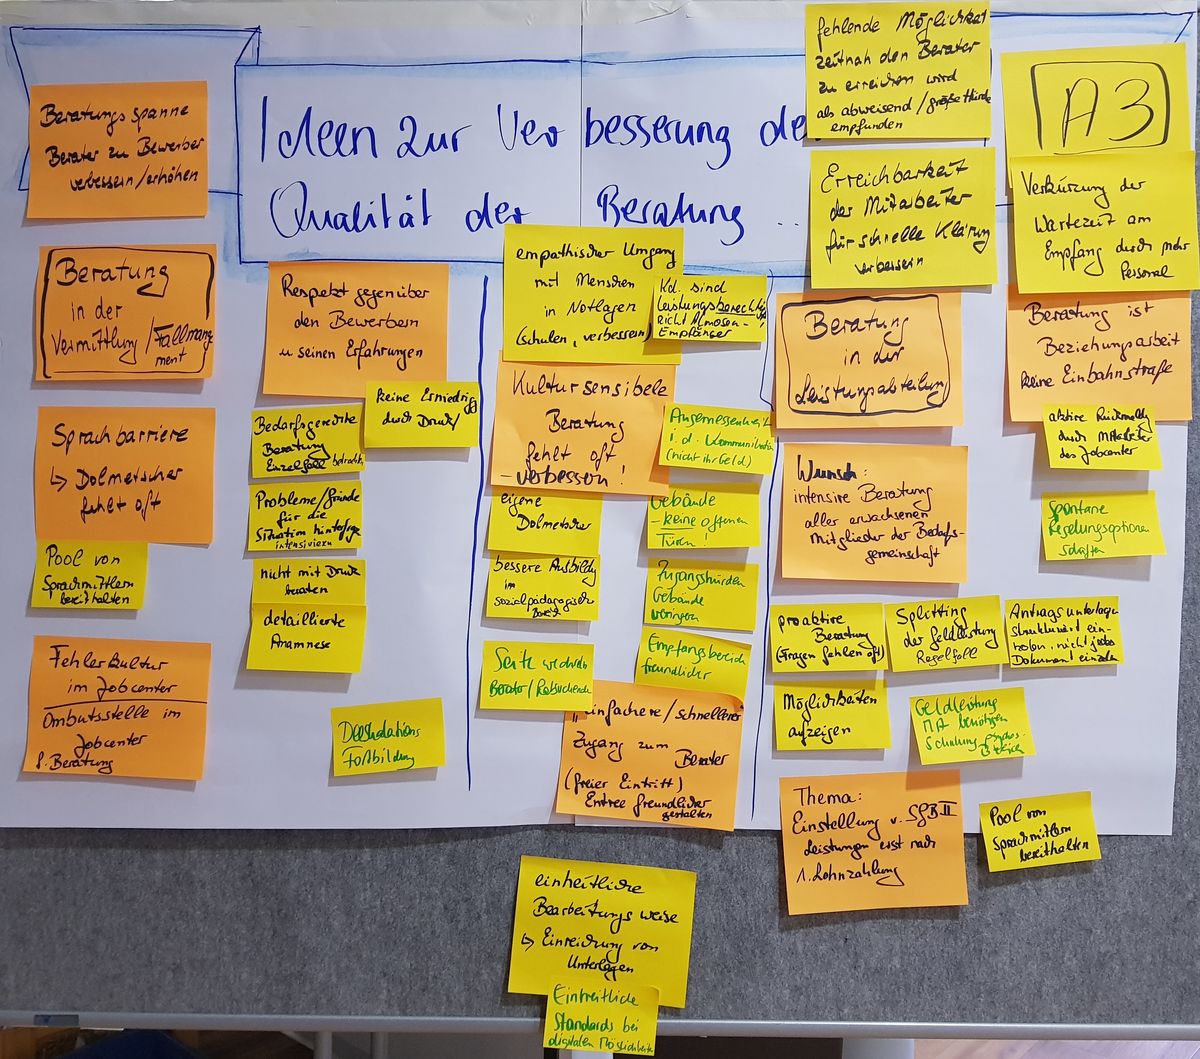 Ideen zur Verbesserung de
Qualität der Beratung ...
fehlende Möglichkeit
zeitnah den Berater
zu erreichen wird
als abweisend/große Hürde
empfunden
A3
Beratungsspanne
Berater zu Bewerber
verbessern/erhöhen
Erreichbarkeit
der Mitarbeiter
für schnelle Klärung
verbessern
Verkürzung der
Wartezeit am
Empfang durch mehr
Personal
Beratung
in der
Vermittlung/Fallmanage
ment
Sprachbarriere
↳ Dolmetscher
fehlt oft
Pool von
Sprachmittlern
bereithalten
Fehlerkultur
im Jobcenter
Ombutsstelle im
Jobcenter
f. Beratung
Respekt gegenüber
den Bewerbern
u seinen Erfahrungen
keine Erniedrig
durch Druck
Bedarfsgerechte
Beratung
Einzelfall betrachten
Probleme/Gründe
für die
Situation hinterfrage
intensivieren
nicht mit Druck
beraten
detaillierte
Anamnese
Deeskalations
Fortbildung
empathischer Umgang
mit Menschen
in Notlagen
(schulen, verbessern)
Kd. sind
leistungsberechtigt
nicht Almosen-
Empfänger
Kultursensible
Beratung
fehlt oft
- verbessern!
Angemessenheit
i.d. Kommunikation
(nicht ihr Geld)
eigene
Dolmetscher
bessere Ausbildg
im
sozialpädagogischen
Bereich
Seite wechseln
Berater/Ratsuchende
Gebäude
- keine offenen
Türen!
Zugangshürden
Gebäude
verringern
Empfangsbereich
freundlicher
"einfachere/schnellere"
Zugang zum
Berater
(freier Eintritt)
Entree freundlicher
gestalten
einheitliche
Bearbeitungsweise
↳ Einreichung von
Unterlagen
Einheitliche
Standards bei
digitalen Möglichkeiten
Beratung
in der
Leistungsabteilung
Wunsch:
intensive Beratung
aller erwachsenen
Mitglieder der Bedarfs-
gemeinschaft
proaktive
Beratung
(Fragen fehlen oft)
Splitting
der Geldleistung
Regelfall
Antragsunterlagen
strukturiert ein-
holen, nicht jedes
Dokument einzeln
Möglichkeiten
aufzeigen
Geldleistung
MA benötigen
Schulung
Bereich
Thema:
Einstellung v. SGB II
Leistungen erst nach
1. Lohnzahlung
Pool von
Sprachmittlern
bereithalten
Beratung ist
Beziehungsarbeit
keine Einbahnstraße
aktive Rückmeldg
durch Mitarbeiter
des Jobcenter
Spontane
Regelungsoptionen
schaffen